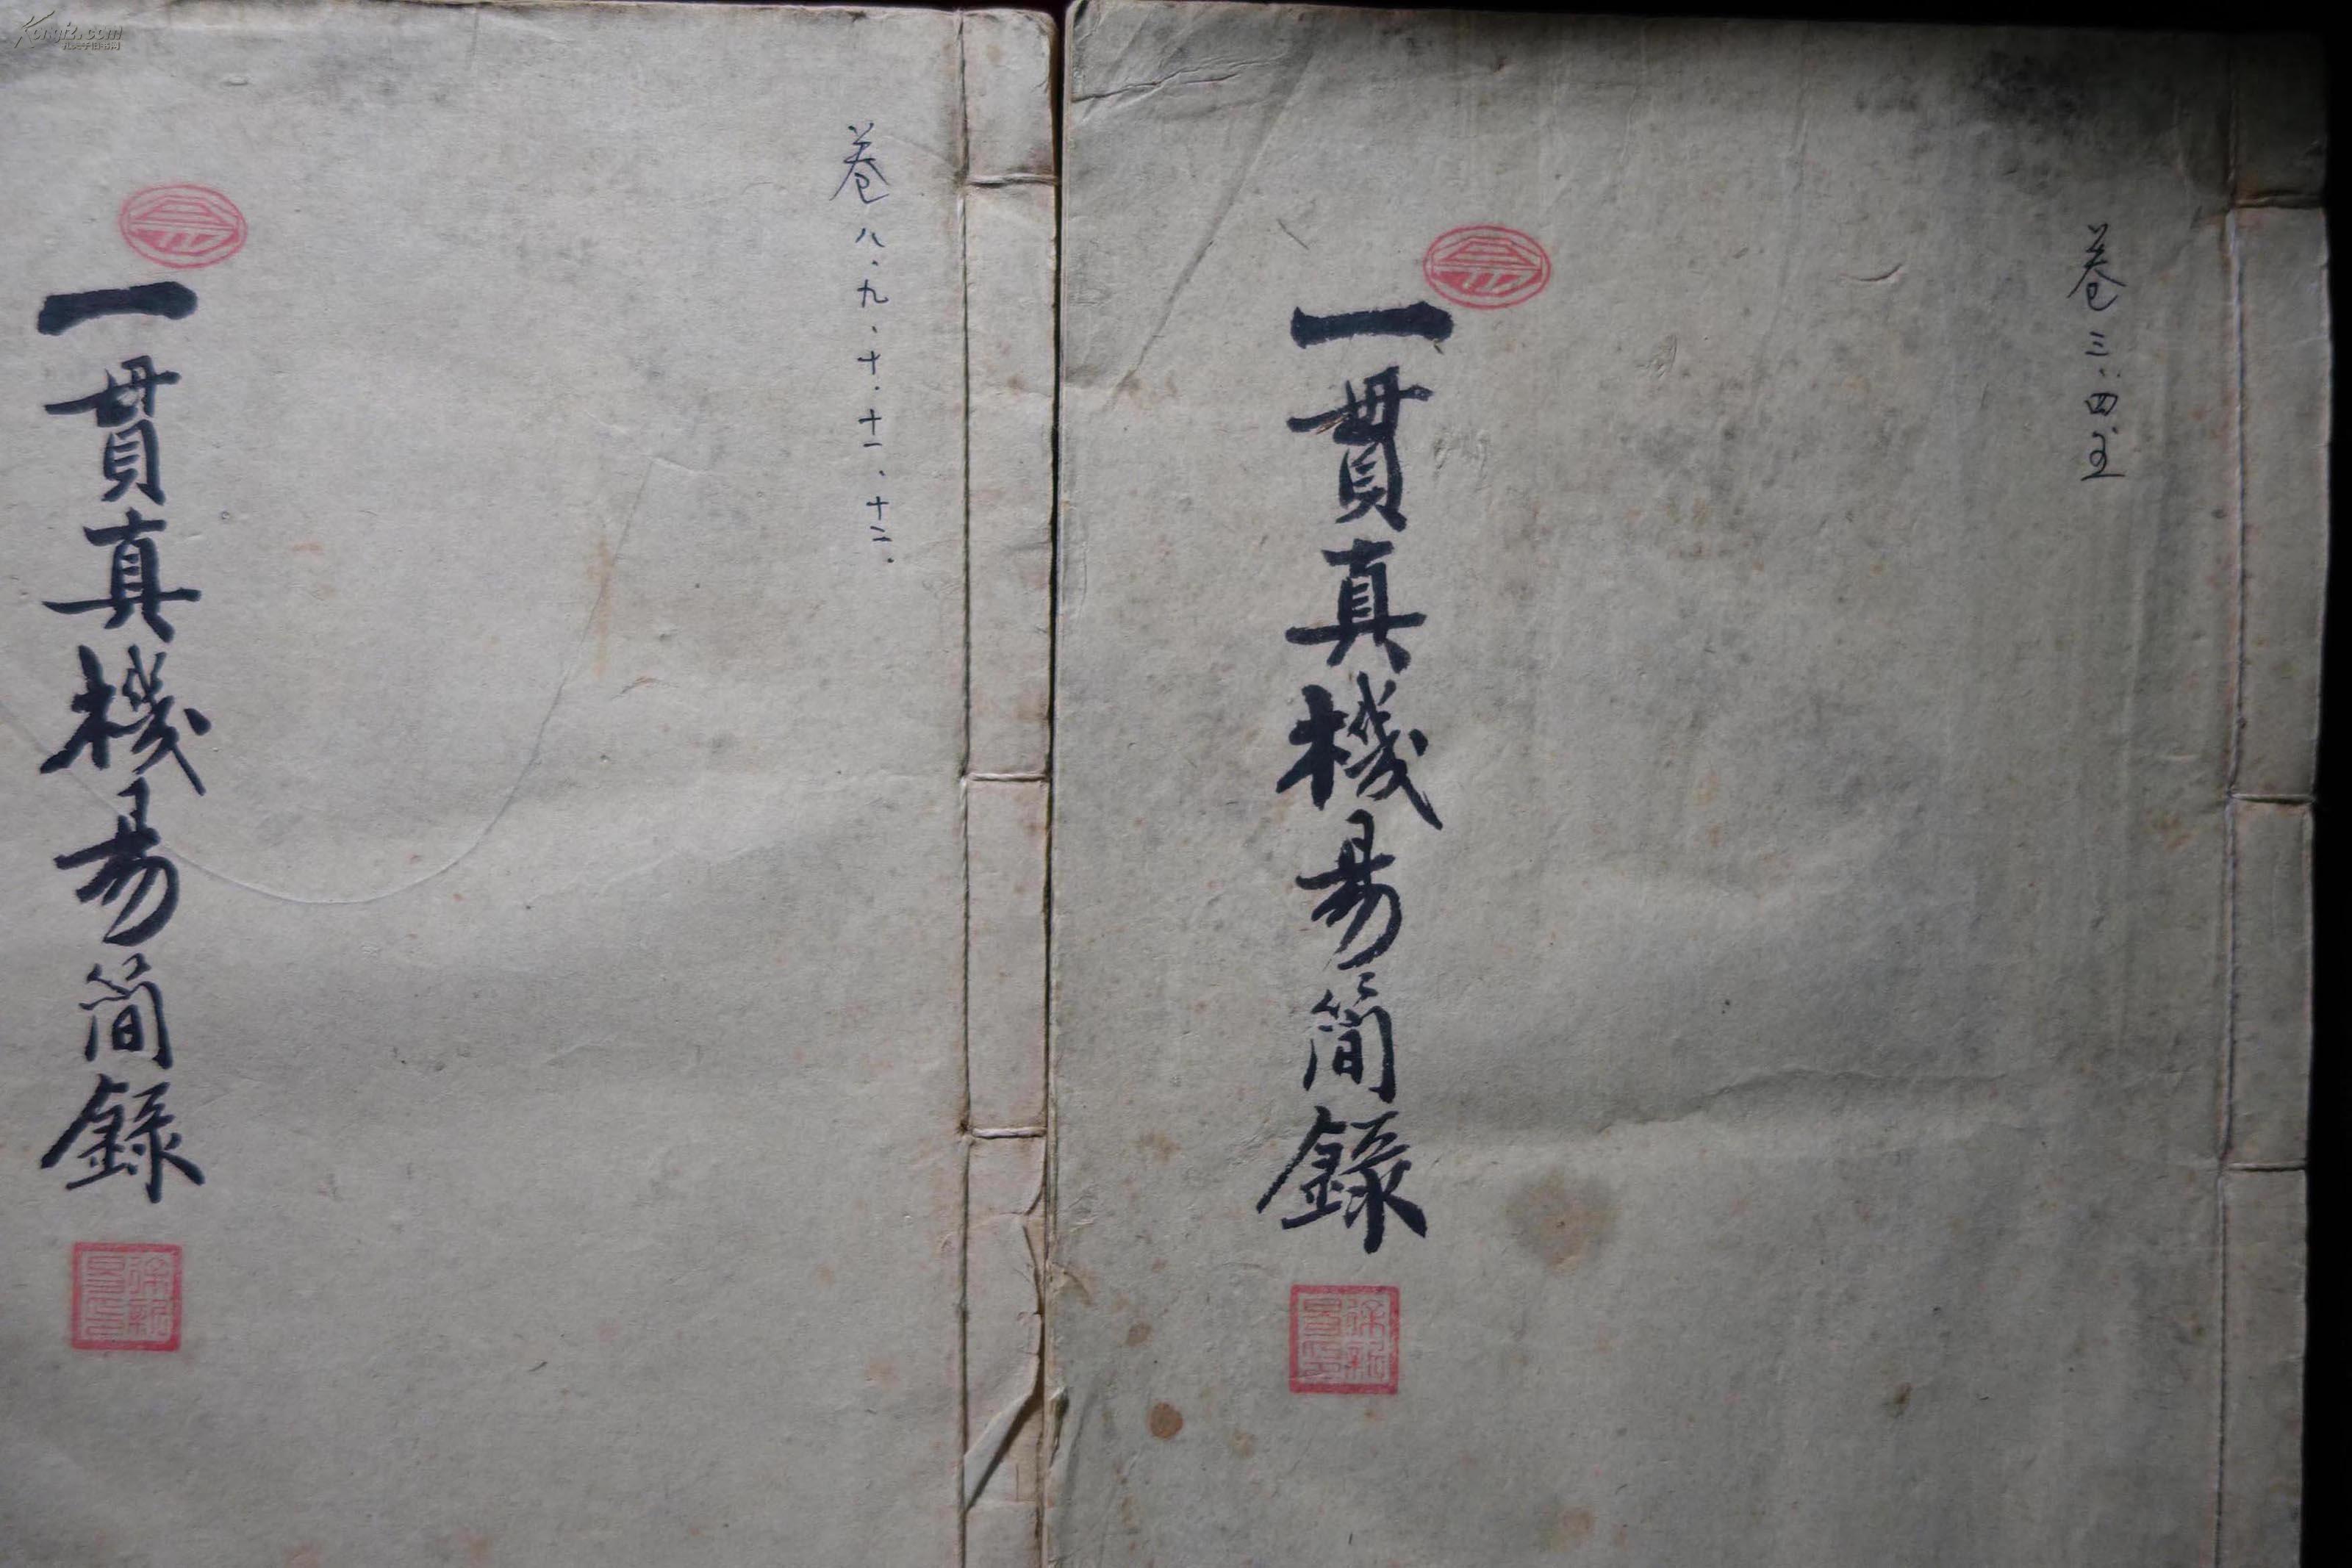 Kongfz.com
孔夫子旧书网
卷三.四.五
一貫真機易簡錄
卷八、九、十、十一、十二.
一貫真機易簡錄